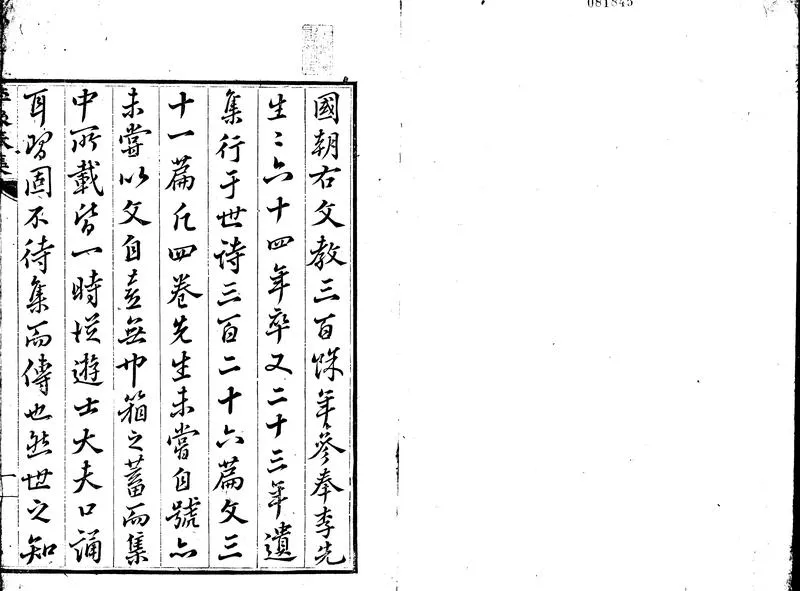 081845
國朝右文教三百餘年參奉李先
生〻六十四年卒又二十三年遺
集行于世詩三百二十六篇文三
十一篇凡四卷先生未嘗自號亦
未嘗以文自喜無巾箱之蓄而集
中所載皆一時從遊士大夫口誦
耳習固不待集而傳也然世之知
一